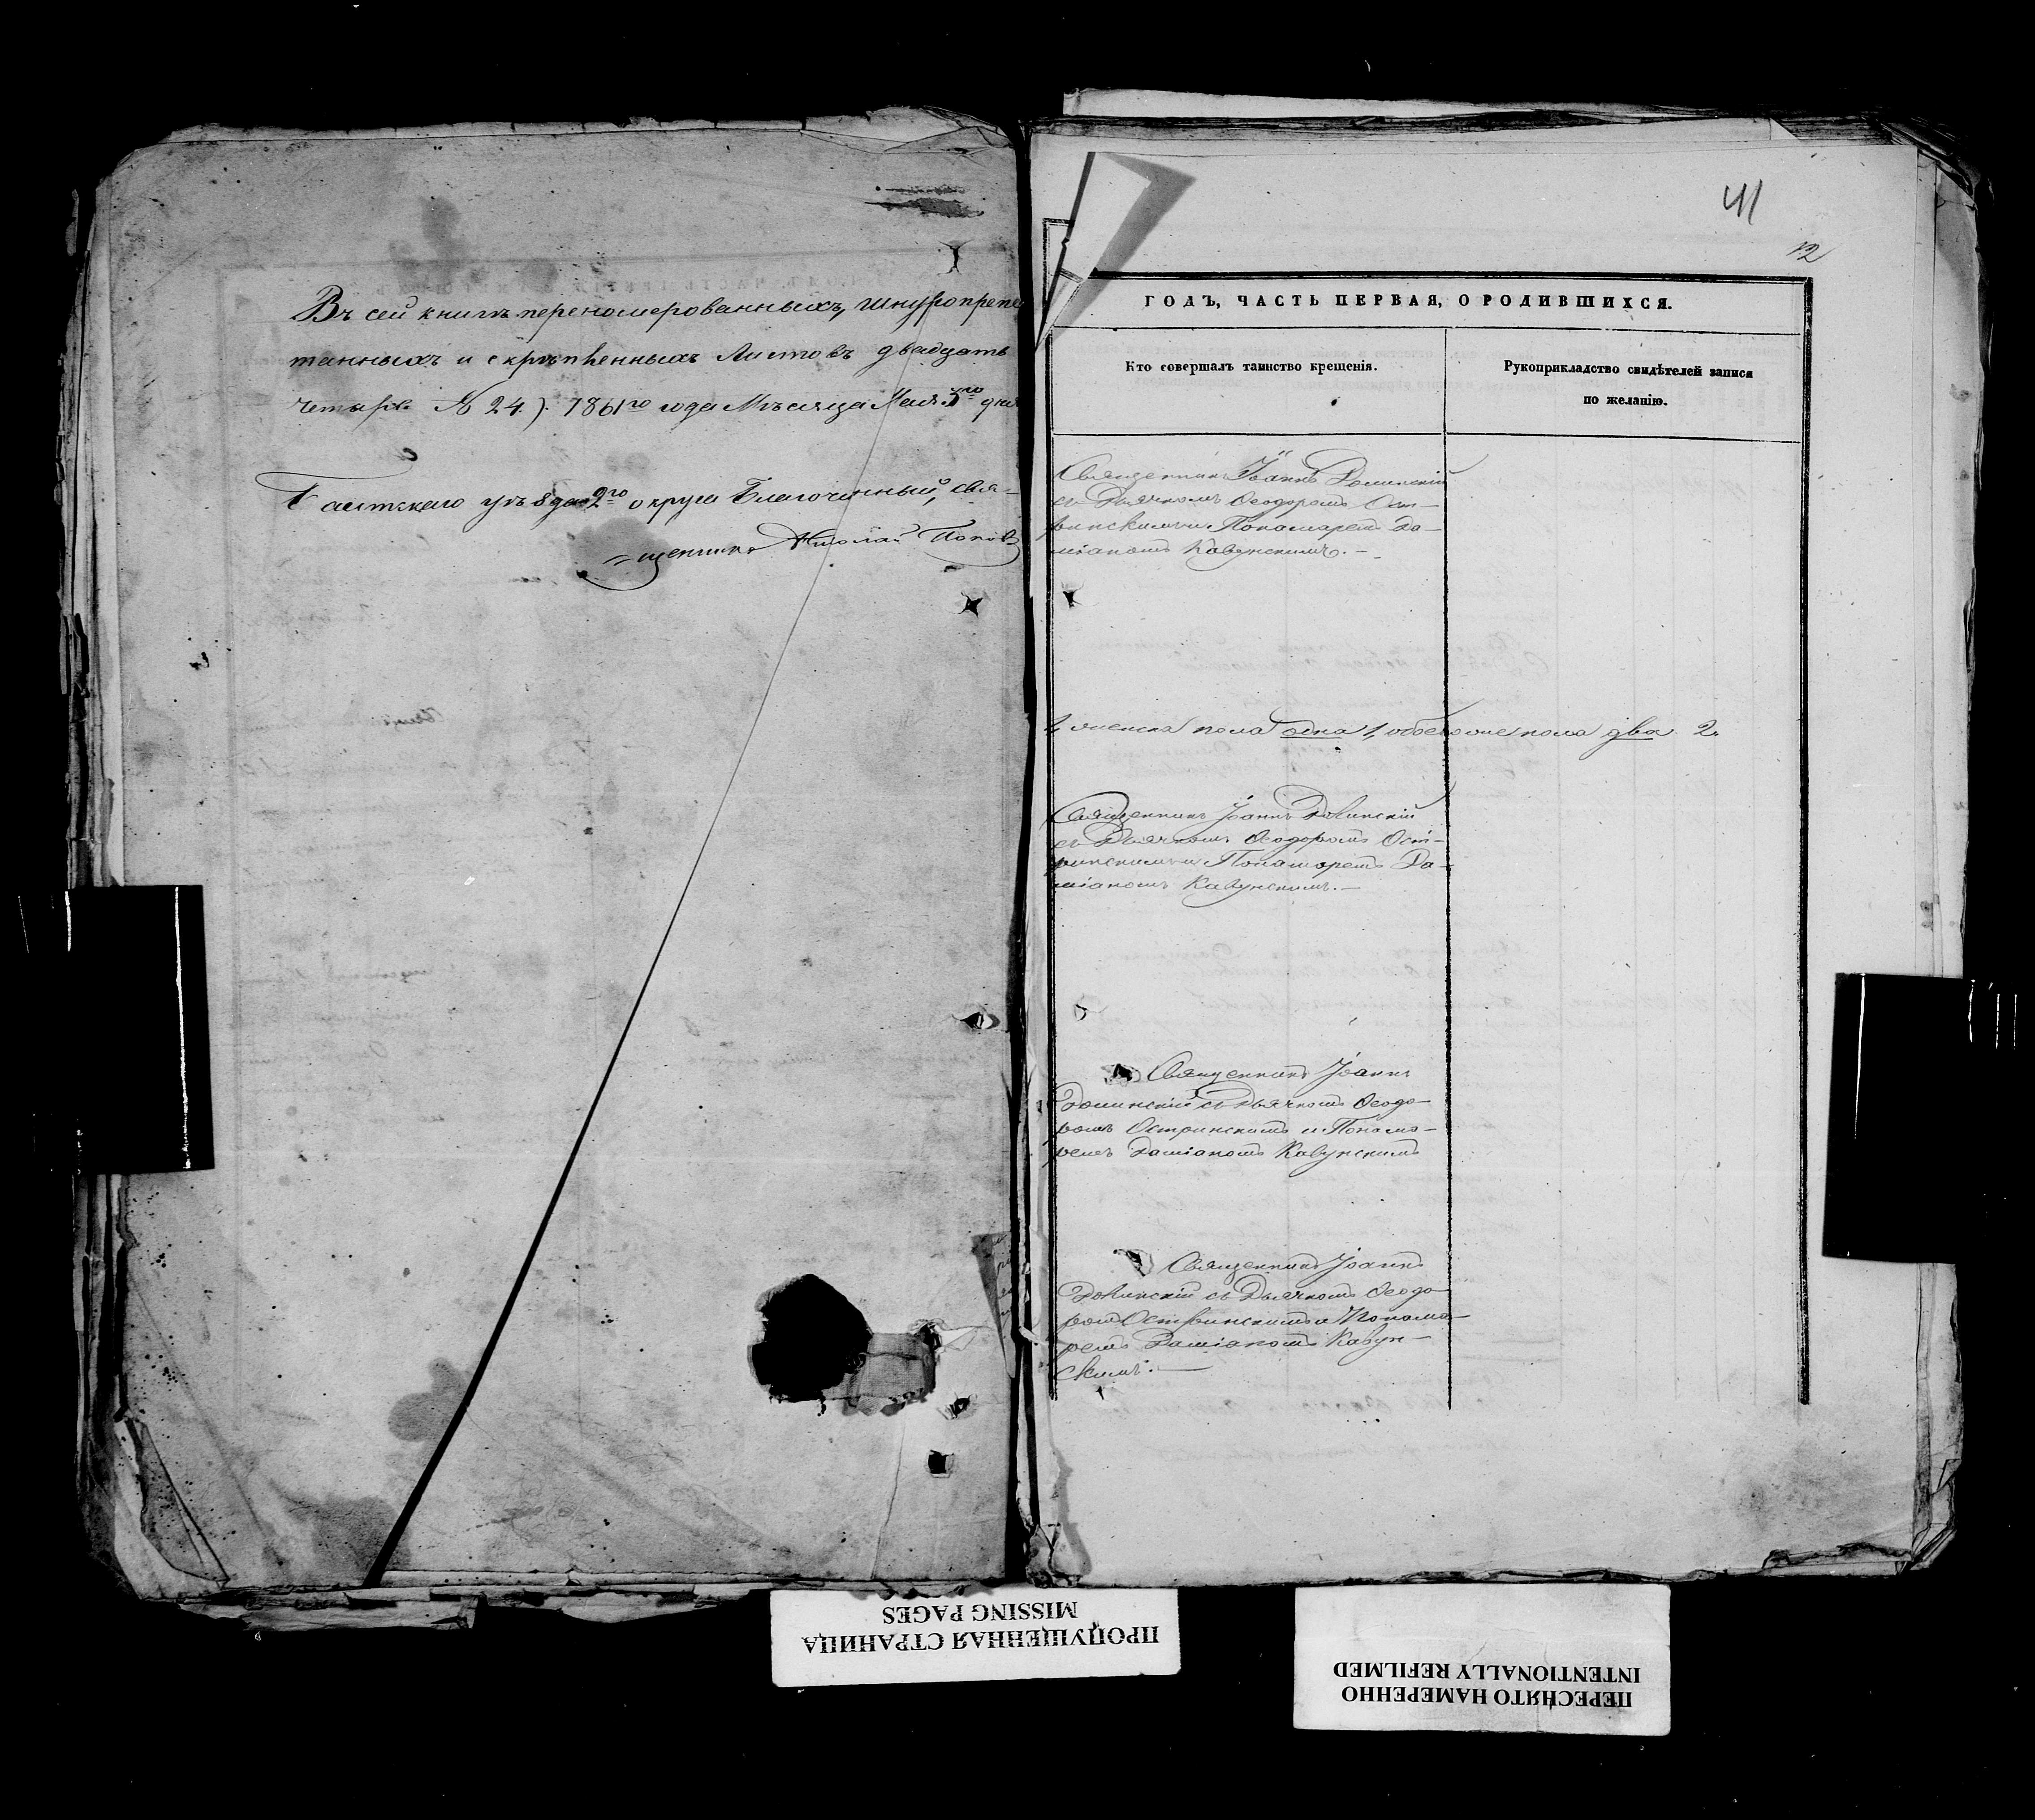 Въ сей книгѣ переномерованныхъ, шнуропрепе
танныхъ и скрѣпленныхъ Листовъ двадцать
четыре № 24.). 1861го года Мѣсяца Мая 5го дня
уѣзда 2го округа Благочинный, Свя-
щенникъ Николай Поповъ
41
12
ГОДЪ, ЧАСТЬ ПЕРВАЯ, О РОДИВШИХСЯ.
Кто совершалъ таинство крещенія.
Рукоприкладство свидѣтелей записи
по желанію.
Священникъ Іоаннъ
съ Дьячкомъ Ѳеодоромъ Ост-
ринскимъ и Понамаремъ Да-
міаномъ Кавунскимъ. -
1, женска пола одна 1, обоего же пола два. 2.
Священникъ Іоаннъ
съ Дьячкомъ Ѳеодоромъ Ост-
ринскимъ и Понамаремъ Да-
міаномъ Кавунскимъ. -
Священникъ Іоаннъ
съ Дьячкомъ Ѳеодо-
ромъ Остринскимъ и Понама-
ремъ Даміаномъ Кавунскимъ
Священникъ Іоаннъ
съ Дьячкомъ Ѳеодо-
ромъ Остринскимъ и Понама-
ремъ Даміаномъ Кавун-
скимъ. -
ПРОПУЩЕННАЯ СТРАНИЦА
MISSING PAGES
ПЕРЕСНЯТО НАМЕРЕННО
INTENTIONALLY REFILMED